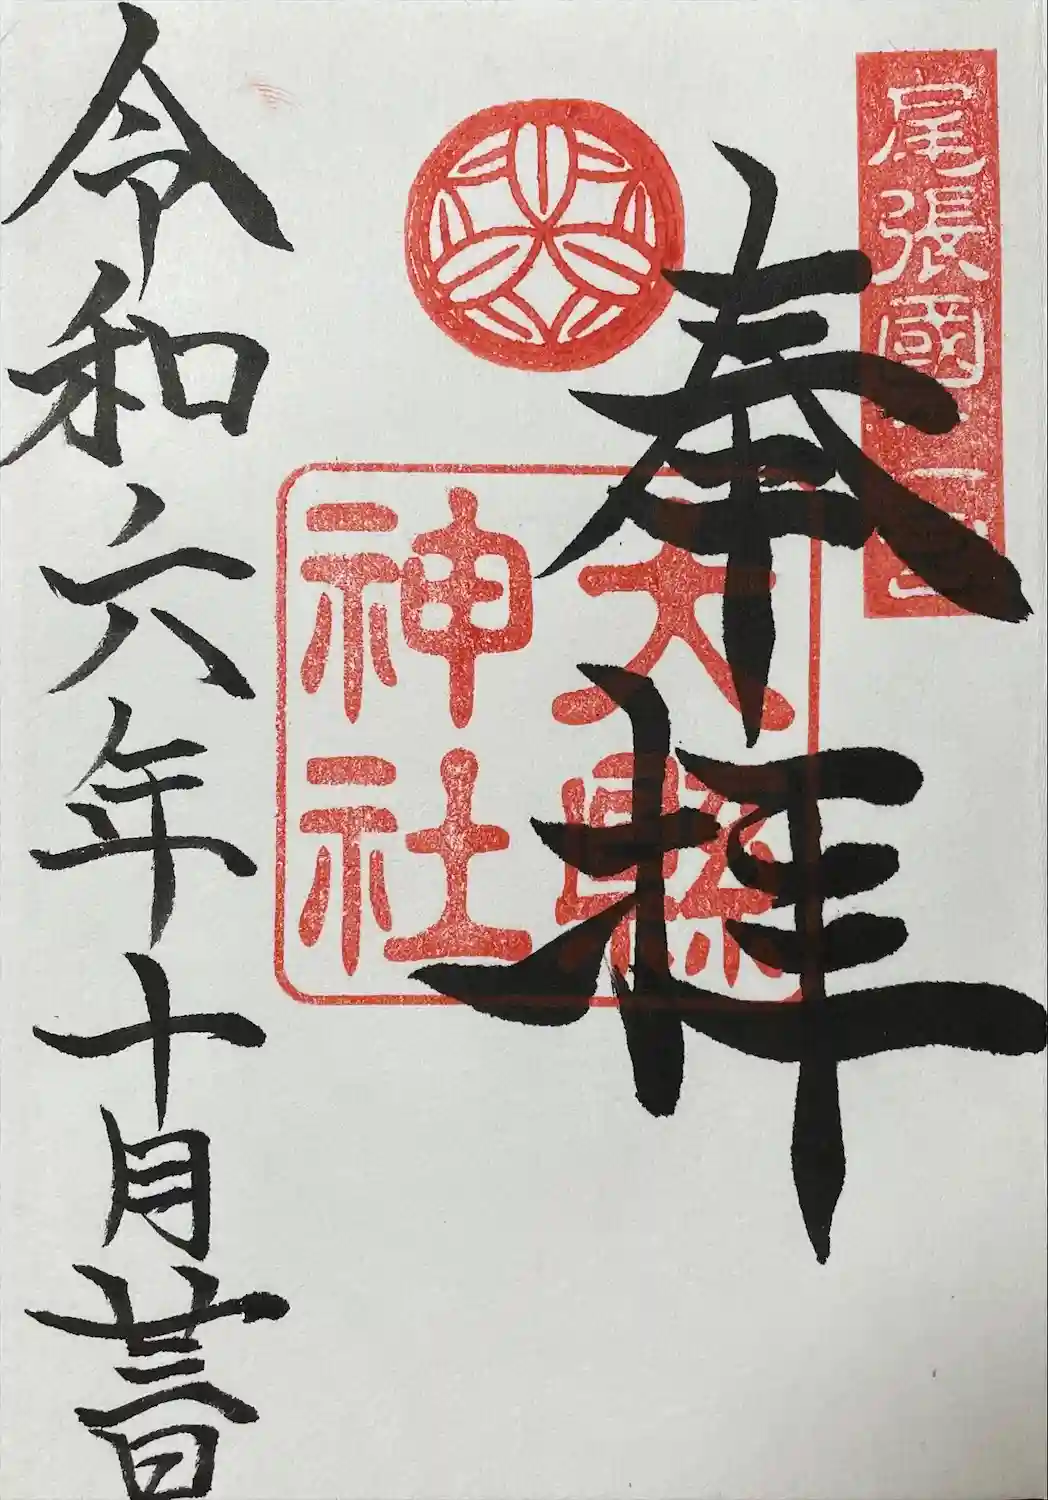 尾張國二宮
奉拝
大縣
神社
令和六年十月廿三日